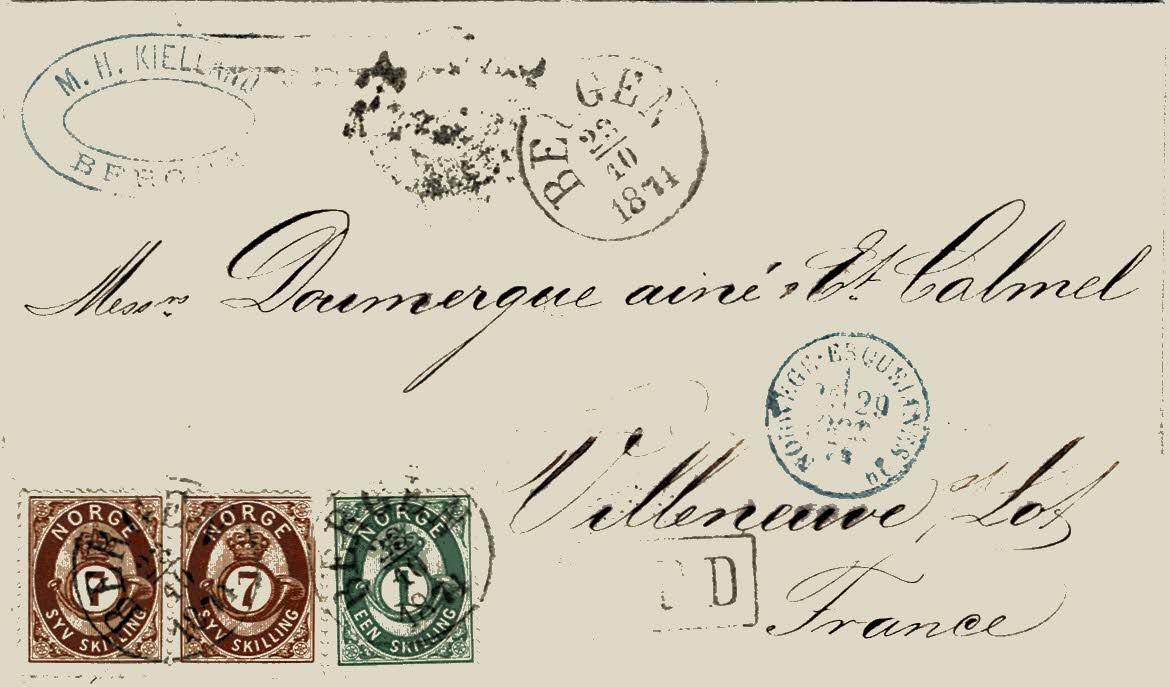 M. H. KIELLAND
BERGEN
BERGEN
23
10
1874
Messrs Doumergue ainé & Et. Calmel
NORVEGE·ERQUELINES
29
OCT
74
Villeneuve s/ Lot
PD
France
NORGE
7
SYV SKILLING
NORGE
7
SYV SKILLING
NORGE
1
EEN SKILLING
BERGEN
BERGEN